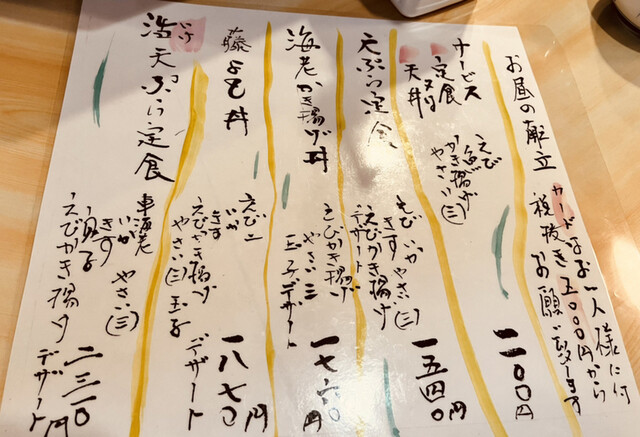 お昼の献立
カードはお一人様に付
税抜き五〇〇〇円から
お願い
サービス
定食
又は
天丼
えび
かき揚げ
やさい(三)
一一〇〇円
天ぷら定食
えび いか やさい(三)
きす
えびかき揚げ
デザート
一五四〇円
海老かき揚げ丼
えびかき揚げ
やさい三
玉子デザート
一七六〇円
藤よし丼
えび二
いか
きす
えびかき揚げ
やさい(三)玉子
デザート
一八七〇円
活天ぷら定食
いけ
車海老
いか
きす
やさい(三)
えびかき揚げ
デザート
二三一〇円